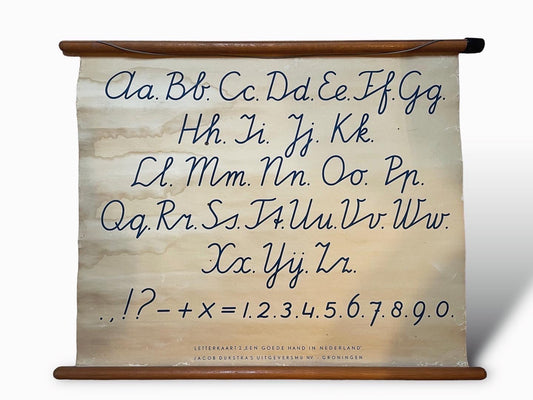 Aa. Bb. Cc. Dd. Ee. Ff. Gg.
Hh. Ii. Jj. Kk.
Ll. Mm. Nn. Oo. Pp.
Qq. Rr. Ss. Tt. Uu. Vv. Ww.
Xx. Yÿ. Zz.
.,!?-+x=1.2.3.4.5.6.7.8.9.0.
LETTERKAART 2 „EEN GOEDE HAND IN NEDERLAND"
JACOB DIJKSTRA'S UITGEVERSMIJ NV - GRONINGEN